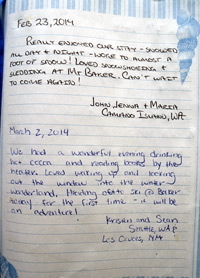 FEB 23, 2014
REALLY ENJOYED OUR STAY - SNOWED
ALL DAY & NIGHT - WOKE TO ALMOST A
FOOT OF SNOW! LOVED SNOWSHOEING &
SLEDDING AT MT BAKER. CAN'T WAIT
TO COME AGAIN!
JOHN, JENNA & MARIA
CAMANO ISLAND, WA
March 2, 2014
We had a wonderful evening drinking
hot cocoa and reading books by the
heater. Loved waking up and looking
out the window into the winter
wonderland. Heading off to ski @ Baker
today for the first time - it will be
an adventure!
Kristen and Sean
Seattle, WA &
Los Cruces, NM